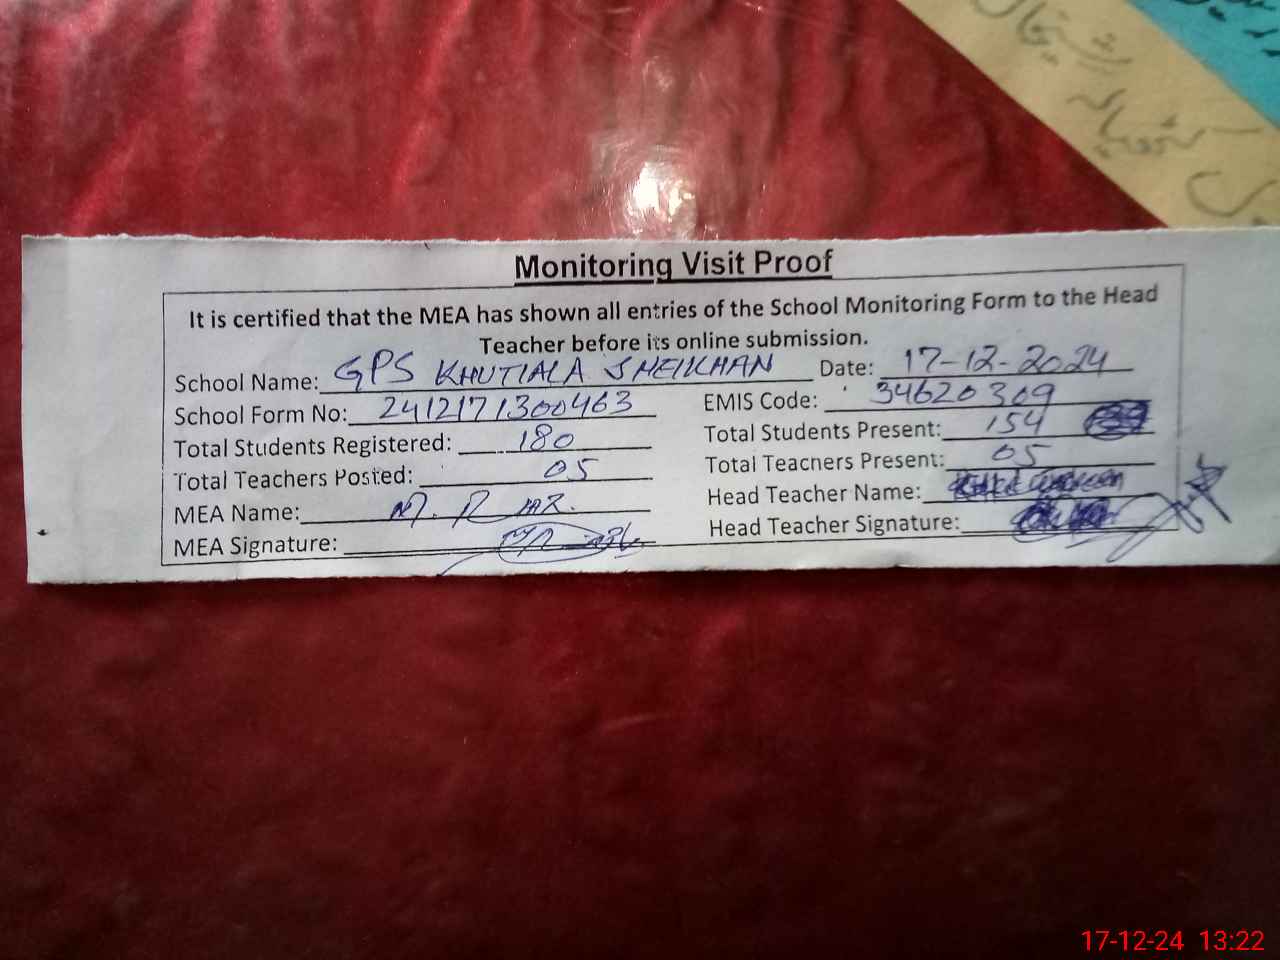 Monitoring Visit Proof
It is certified that the MEA has shown all entries of the School Monitoring Form to the Head
Teacher before its online submission.
School Name: GPS KHUTIALA SHEIKHAN Date: 17-12-2024
School Form No: 2412171300463 EMIS Code: 34620309
Total Students Registered: 180 Total Students Present: 154
Total Teachers Posted: 05 Total Teachers Present: 05
MEA Name: M. Riaz. Head Teacher Name:
MEA Signature: Head Teacher Signature:
17-12-24 13:22